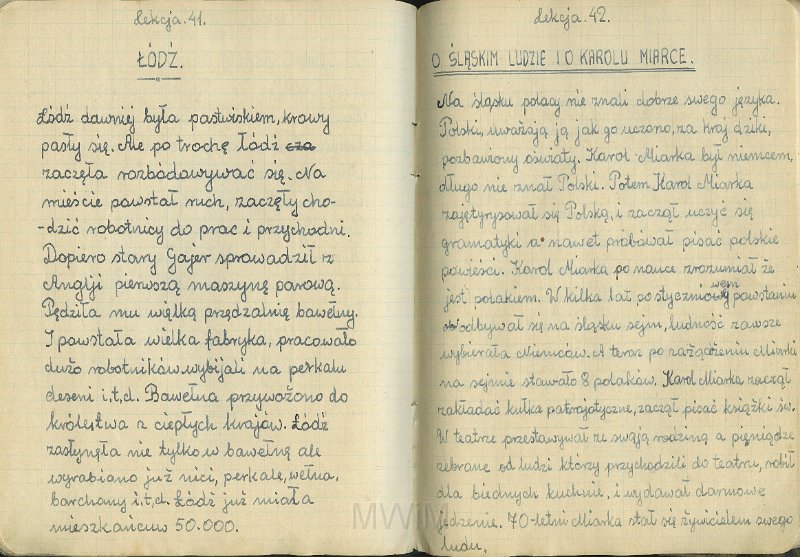 Lekcja. 41.
ŁÓDŹ.
Łódź dawniej była pastwiskiem, krowy
pasły się. Ale po trochę Łódź cza
zaczęła rozbódawywać się. Na
mieście powstał ruch, zaczęły cho-
-dzić robotnicy do prac i przychodni.
Dopiero stary Gajer sprowadził z
Anglji pierwszą maszynę parową.
Pędziła mu wielką przędzalnię bawełny.
I powstała wielka fabryka, pracowało
dużo robotników.wybijali na perkalu
deseni i,t,d. Bawełna przywożono do
królestwa z ciepłych krajów. Łódź
zasłynęła nie tylko w bawełnę ale
wyrabiano już nici, perkale, wełna,
barchany i.t,d. Łódź już miała
mieszkańcuw 50.000.
Lekcja. 42.
O ŚLĄSKIM LUDZIE I O KAROLU MIARCE.
Na śląsku polacy nie znali dobrze swego języka.
Polski, uważają ją jak go uczono, za kraj dziki,
pozbawiony oświaty. Karol Miarka był niemcem,
długo nie znał Polski. Potem Karol Miarka
zajętyrysował się Polską, i zaczął uczyć się
gramatyki a nawet próbował pisać polskie
powieści. Karol Miarka po nauce zrozumiał że
jest polakiem. W kilka lat po styczniowem powstaniu
odbywał się na śląsku sejm, ludność zawsze
wybierała Niemców. A teraz po zażądzeniu Miarki
na sejmie stawało 8 polaków. Karol Miarka zaczął
zakładać kułka patrjotyczne, zaczął pisać książki św.
W teatrze przestawywał ze swają rodziną a pieniądze
zebrane od ludzi którzy przychodzili do teatru, robił
dla biednych kuchnie, i wydawał darmowe
jedzenie. 70-letni Miarka stał się żywicielem swego
ludu.
MWiM